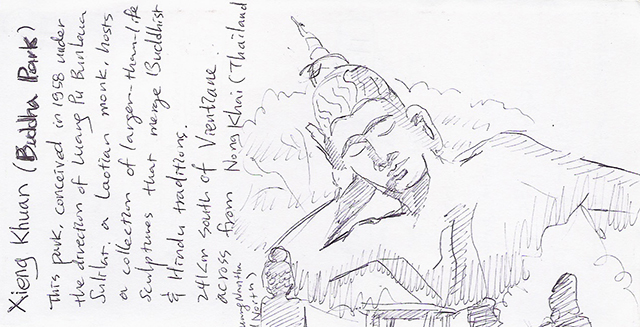 Xieng Khuan (Buddha Park)
This park, conceived in 1958 under
the direction of Luang Pu Bunleua
Sulilat, a Laotian monk, hosts
a collection of larger-than-life
sculptures that merge Buddhist
& Hindu traditions.
24km south of Vientiane
across from Nong Khai (Thailand
North)